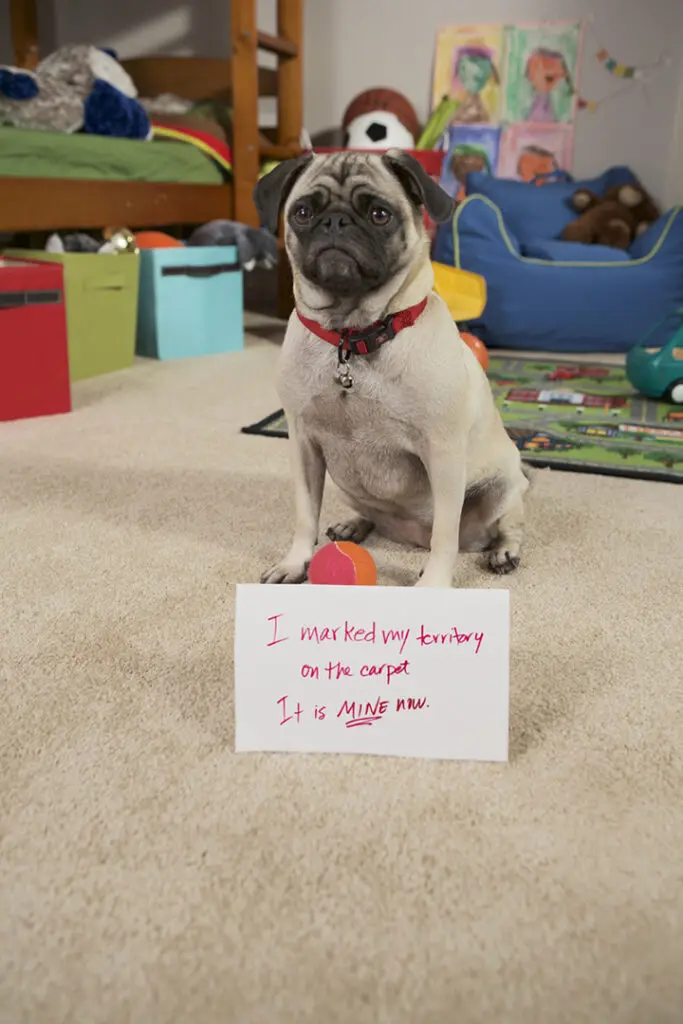 I marked my territory
on the carpet
It is MINE now.